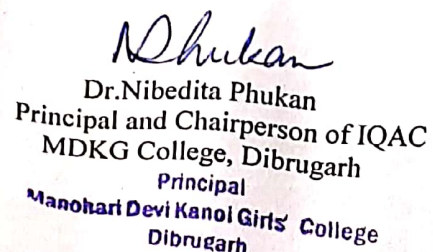 NPhukan
Dr.Nibedita Phukan
Principal and Chairperson of IQAC
MDKG College, Dibrugarh
Principal
Manohari Devi Kanoi Girls' College
Dibrugarh